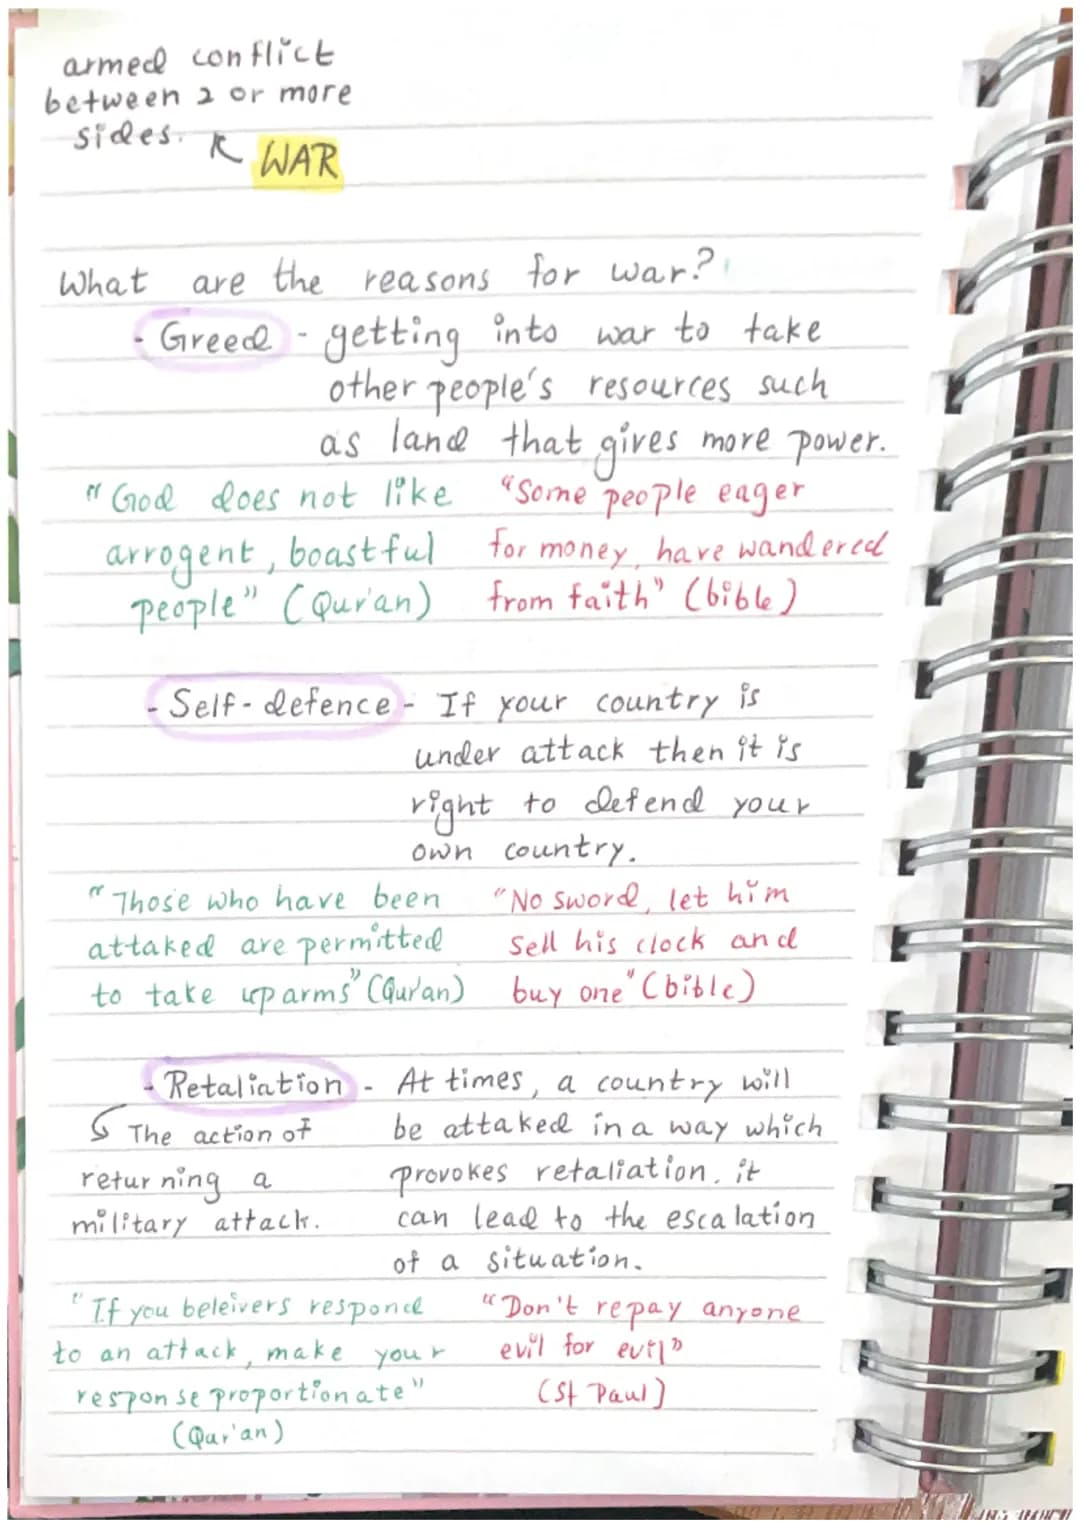 armed conflict
between 2 or more
sides.
WAR
What are the reasons for war?
- Greed - getting into war to take
other people's resources such
as land that gives more power.
"God does not like
arrogent, boastful
people" (Qur'an)
"Some people eager
for money, have wandered
from faith" (bible)
- Self-defence - If your country is
under attack then it is
right to defend your
own country.
"Those who have been
attaked are permitted
to take up arms" (Qur'an)
"No sword, let him
sell his clock and
buy one" (bible)
- Retaliation - At times, a country will
be attaked in a way which
provokes retaliation. it
can lead to the escalation
of a situation.
The action of
returning a
military attack.
"If you beleivers respond
to an attack, make your
response proportionate"
(Qur'an)
"Don't repay anyone
evil for evil"
(St Paul)